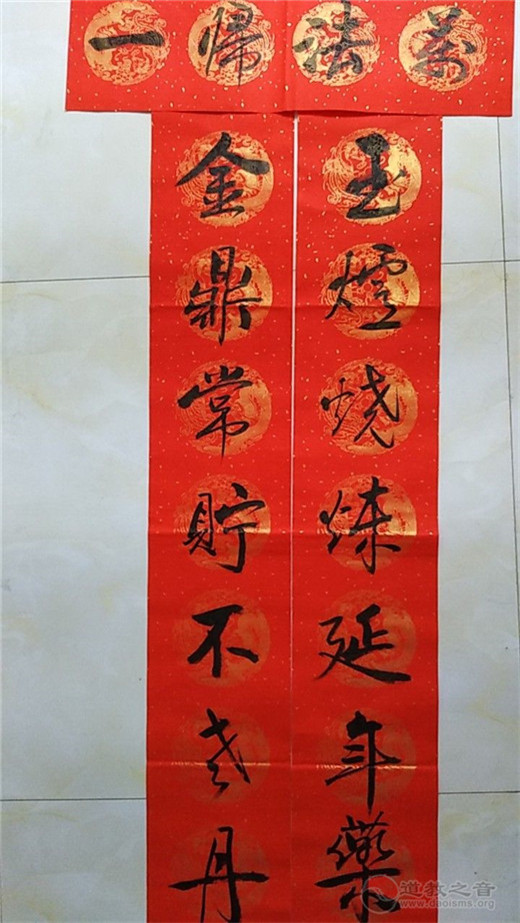 萬法歸一
玉爐燒煉延年藥
金鼎常貯不老丹
道教之音
www.daoisms.org